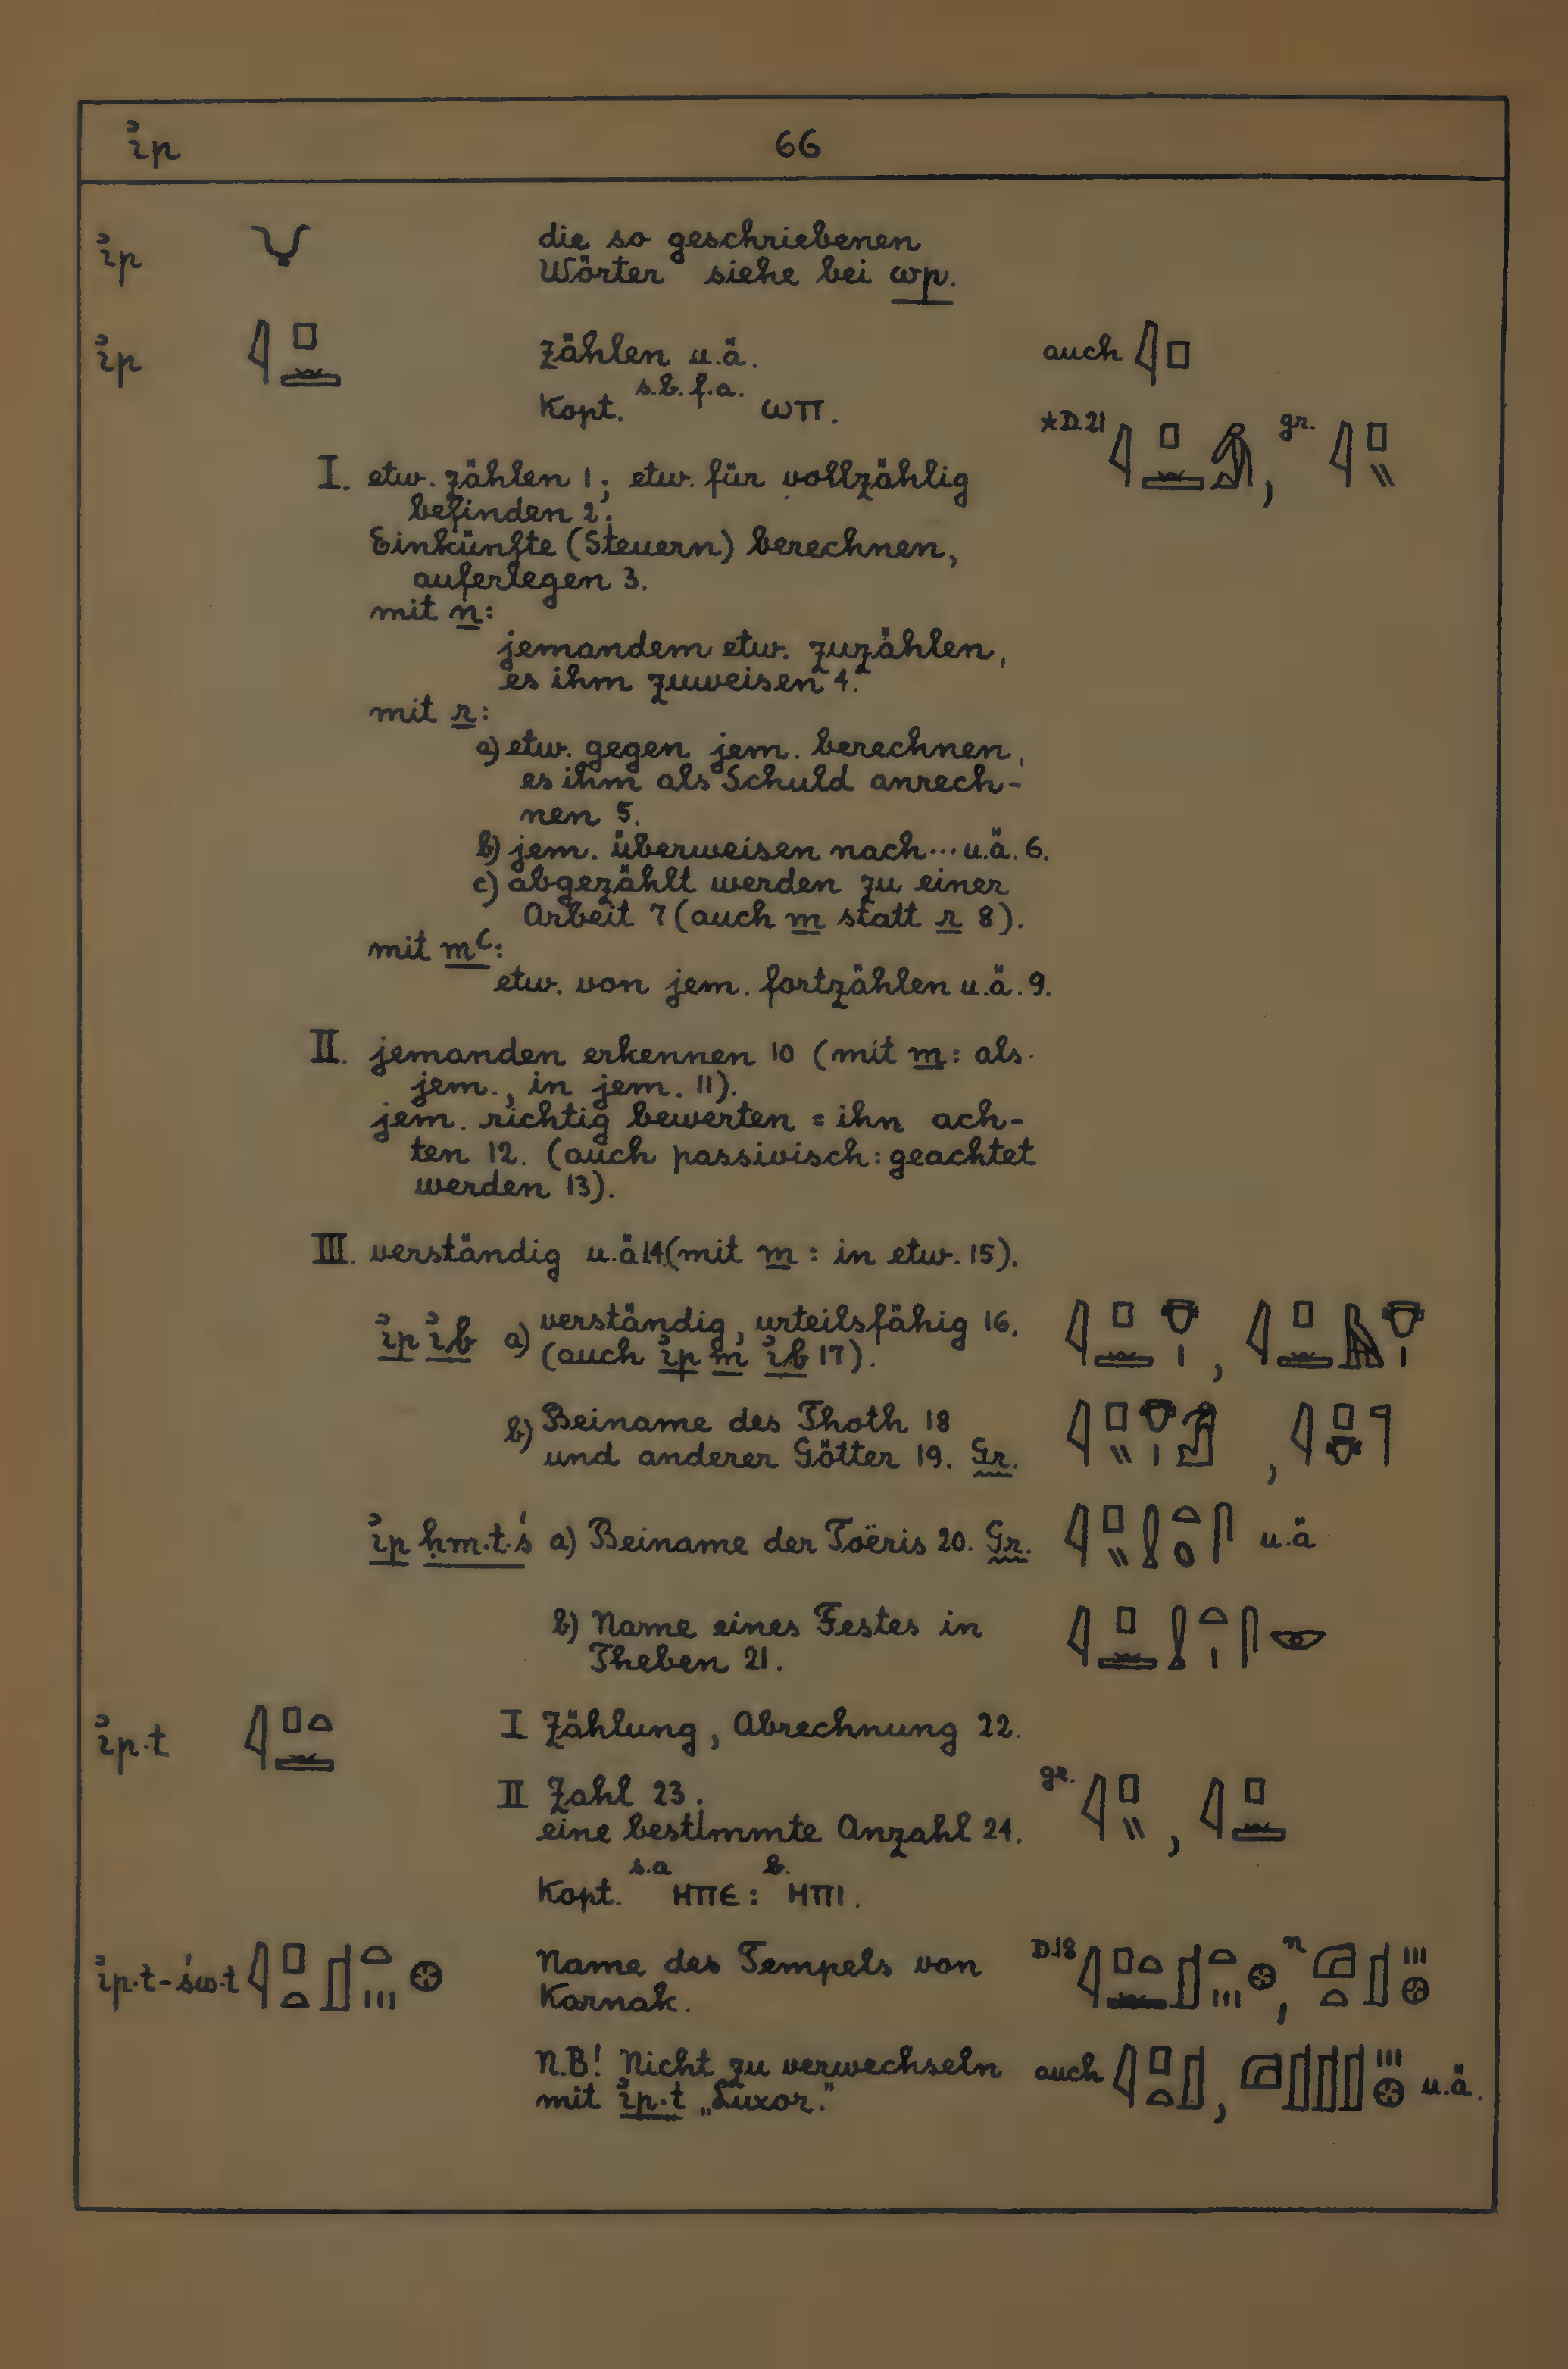 ı͗p 66
ı͗p 𓄋 die so geschriebenen
Wörter siehe bei wp.
ı͗p 𓇋𓊪𓏠 zählen u.ä. auch 𓇋𓊪
Kopt. s.b.f.a. ⲱⲡ. *D.21 , gr. 𓇋𓊪𓏭
I. etw. zählen 1; etw. für vollzählig
befinden 2.
Einkünfte (Steuern) berechnen,
auferlegen 3.
mit n:
jemandem etw. zuzählen,
es ihm zuweisen 4.
mit r:
a) etw. gegen jem. berechnen,
es ihm als Schuld anrech-
nen 5.
b) jem. überweisen nach... u.ä. 6.
c) abgezählt werden zu einer
Arbeit 7 (auch m statt r 8).
mit mꜥ:
etw. von jem. fortzählen u.ä. 9.
II. jemanden erkennen 10 (mit m: als
jem., in jem. 11).
jem. richtig bewerten = ihn ach-
ten 12. (auch passivisch: geachtet
werden 13).
III. verständig u.ä 14. (mit m: in etw. 15).
ı͗p ı͗b a) verständig, urteilsfähig 16. 𓇋𓊪𓏠𓄣𓏤 , 𓇋𓊪𓏠𓅓𓄣𓏤
(auch ı͗p m ı͗b 17).
b) Beiname des Thoth 18
und anderer Götter 19. Gr. , 𓇋𓊪𓄣𓊹
ı͗p ḥm.t.ś a) Beiname der Toëris 20. Gr. 𓇋𓊪𓏭𓍛𓏏𓆇𓋴 u.ä
b) Name eines Festes in
Theben 21. 𓇋𓊪𓏠𓍛𓏏𓏤𓋴𓎱
ı͗p.t 𓇋𓊪𓏏𓏠 I Zählung, Abrechnung 22.
II Zahl 23. gr. 𓇋𓊪𓏭 , 𓇋𓊪𓏠
eine bestimmte Anzahl 24.
Kopt. s.a ⲏⲡⲉ : b. ⲏⲡⲓ.
ı͗p.t-św.t 𓇋𓊪𓏏𓊨𓏏𓏥𓊖 Name des Tempels von D.18 𓇋𓊪𓏏𓏠𓊨𓏏𓏥𓊖 , n 𓉗𓏏𓊨𓏥𓊖
Karnak.
N.B! Nicht zu verwechseln auch 𓇋𓊪𓏏𓊨 , 𓉗𓊨𓊨𓊨𓏥𓊖 u.ä.
mit ı͗p.t „Luxor."